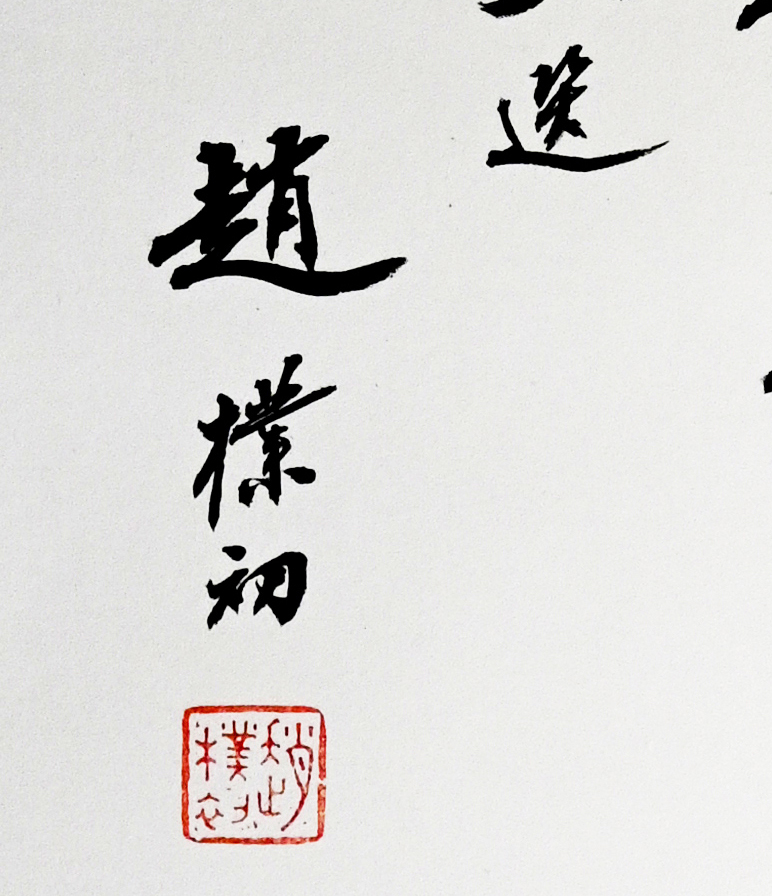 選
趙樸初
趙樸初